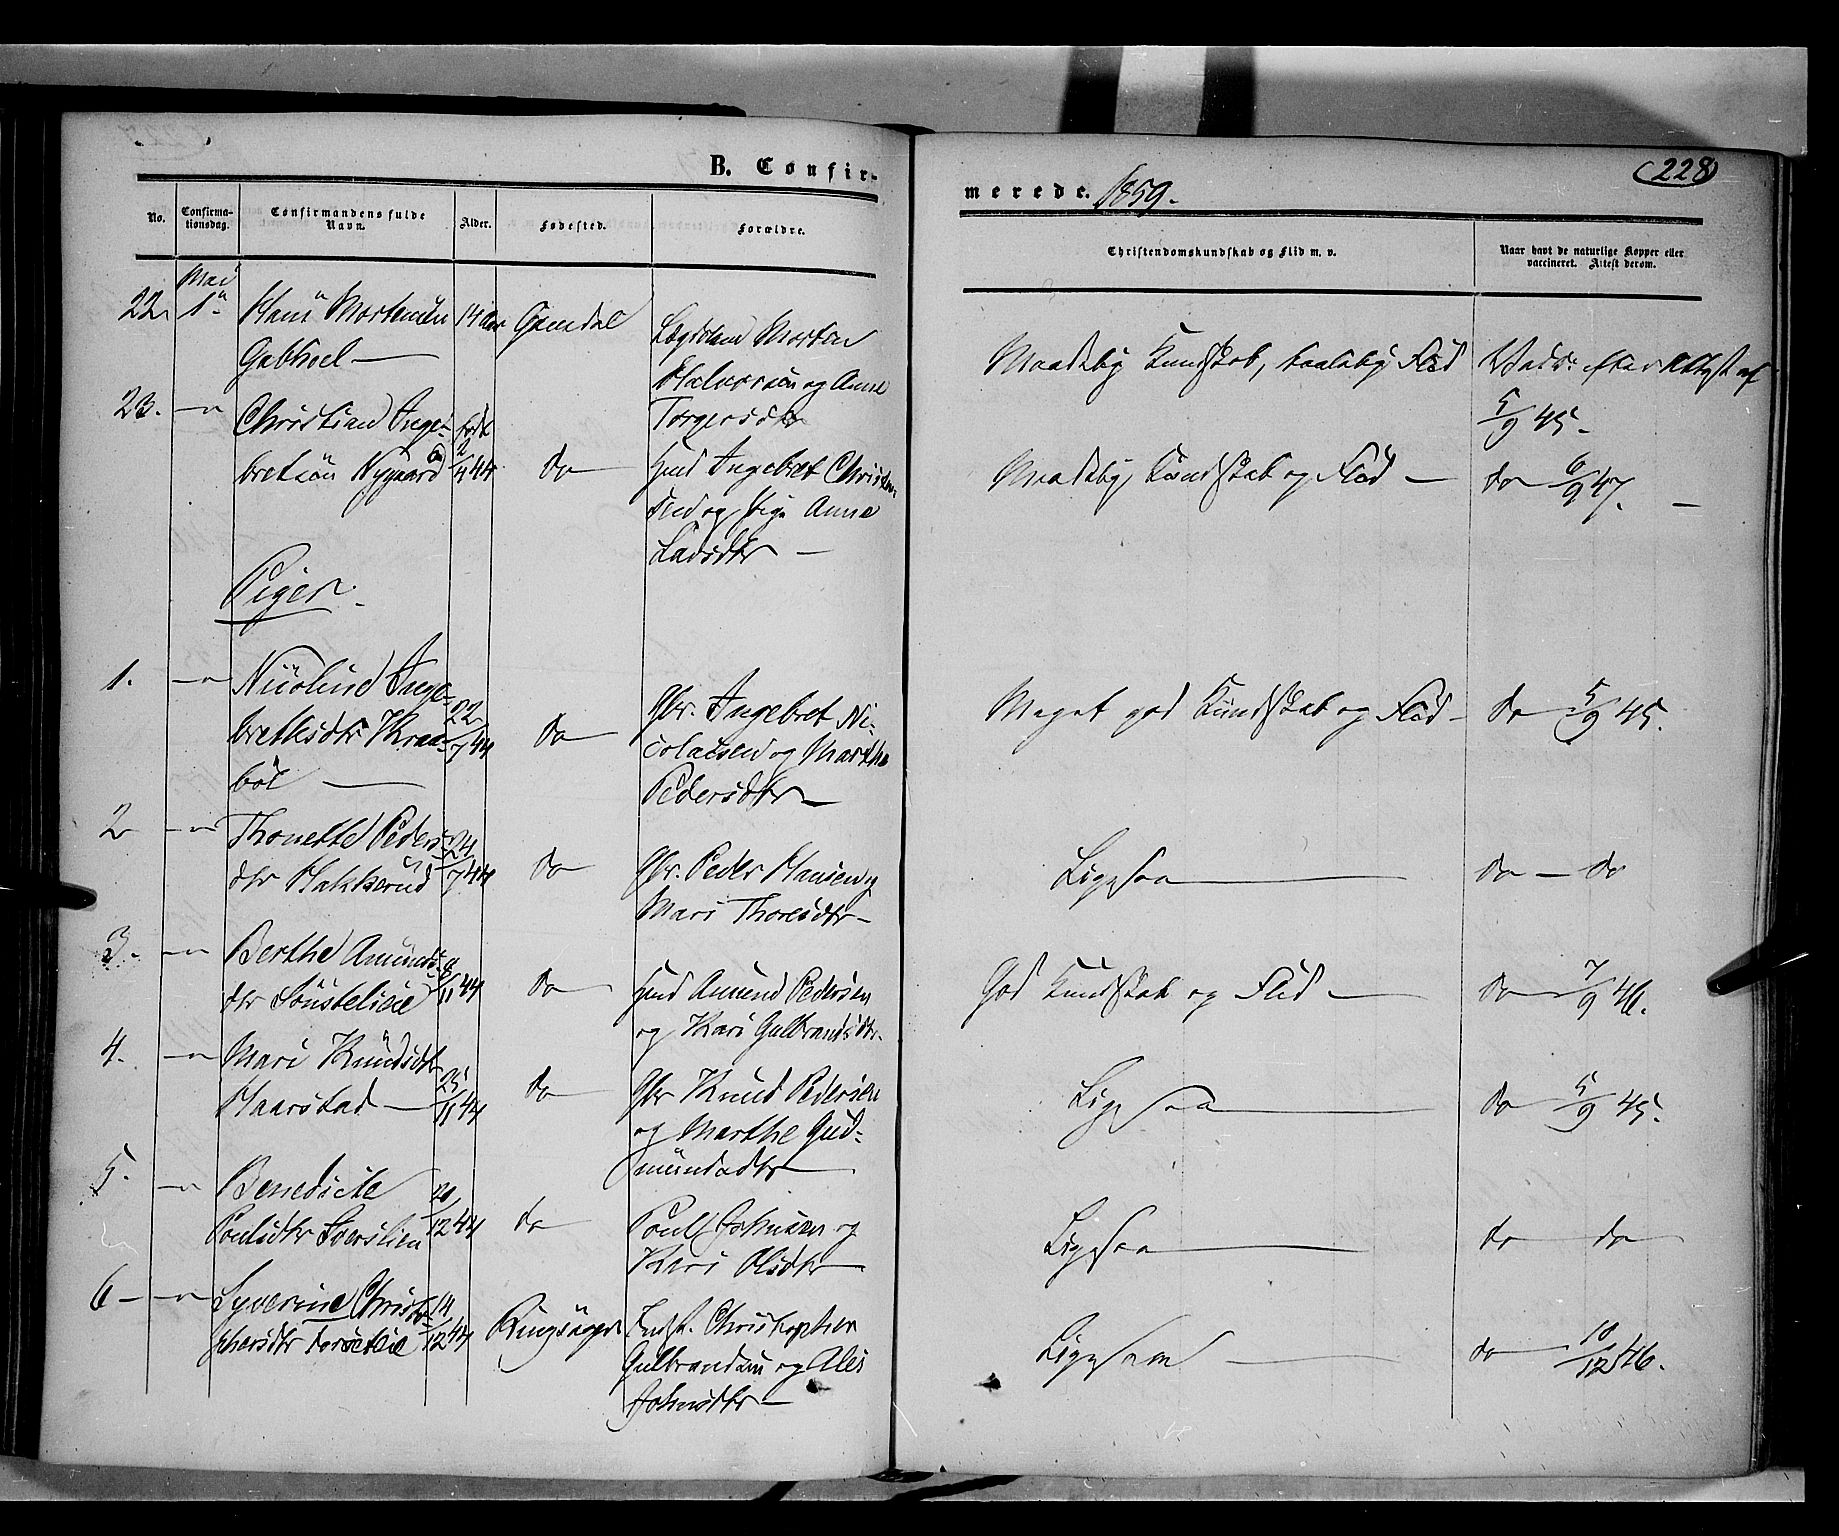 B. Confir-
merede. 1859.
228
No.
Confirma-
tionsdag.
Confirmandens fulde
Navn.
Alder.
Fødested.
Forældre.
Christendomskundskab og Flid m. v.
Naar havt de naturlige Kopper eller
vaccineret. Attest derom.
22 Mai 1ste Hans Mortensen 14 Aar Gausdal
Gabhoel —
Morten
Halvorsen og Anne
Torgersdtr
Maadelig Kundskab, taalelig Flid
Vacc: efter Attest af
5/9 45.
23. — Christian Inge-
bretsøn Nygaard
født 2/11 44 do
Hmd Ingebret Christen-
sen og Pige Anne
Ladsdtr —
Maadelig Kundskab og Flid —
do 6/9 47. —
Piger.
1. — Nicoline Inge-
bretsdtr Kraa-
böl —
22/7 44 do
Gbr. Ingebret Ni-
colaisen og Marthe
Pedersdtr —
Meget god Kundskab og Flid —
do 5/9 45.
2 — Thonette Peders-
dtr Hakkerud
24/7 44 do
Gbr. Peder Hansen og
Mari Thoresdtr —
Ligesaa —
do — do
3. — Berthe Amunds-
dtr
8/11 44 do
Hmd Amund Pedersen
og Kari Gulbrandsdtr.
God Kundskab og Flid —
do 7/9 46.
4. — Mari Knudsdtr
Haarstad —
25/11 44 do
Gbr Knud Pedersen
og Marthe Gud-
mundsdtr —
Ligesaa —
do 5/9 45.
5. — Benedicte
Poulsdtr
12 44 do
Poul Johnsen og
Kari Olsdtr —
Ligesaa —
do do
6 — Syverine Christo-
phersdtr
14/12 44 Ringsager
Indst. Christopher
Gulbrandsen og
Johnsdtr —
Ligesaa —
do 10/12 46.